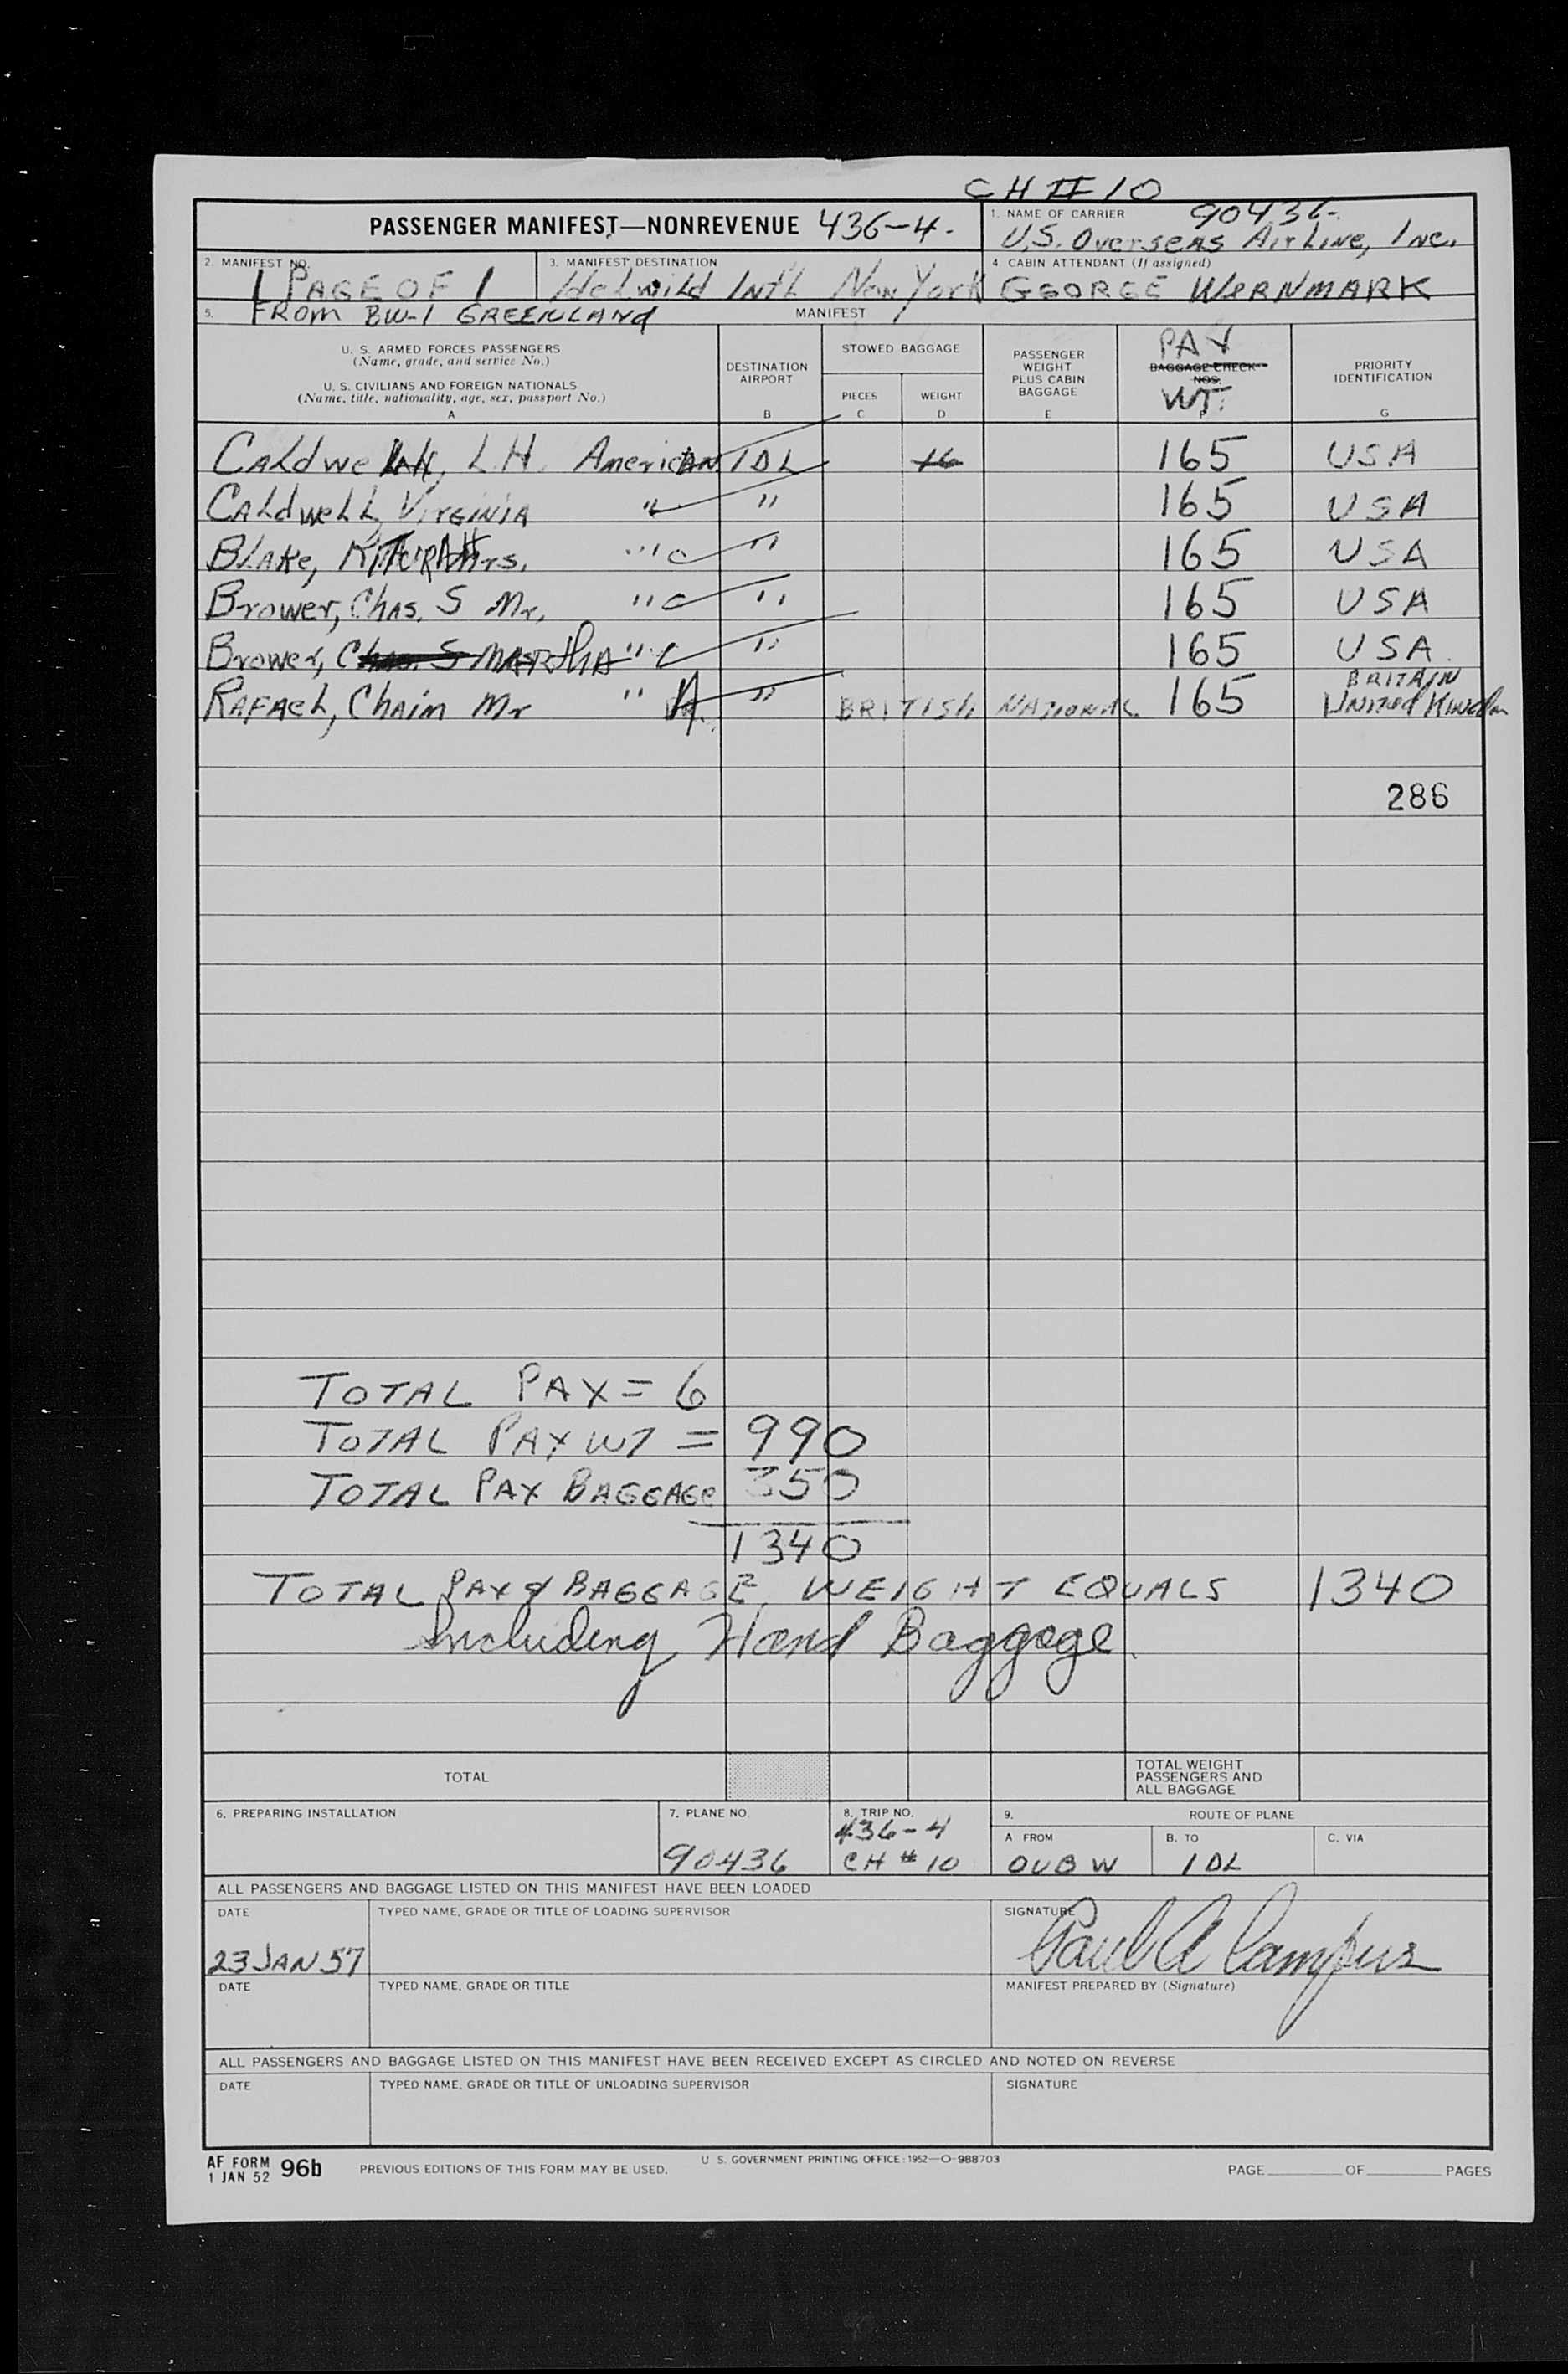 CH # 10
PASSENGER MANIFEST—NONREVENUE 436-4.
1. NAME OF CARRIER 90436-
U.S. Overseas AirLine, Inc.
2. MANIFEST NO.
1 PAGE OF 1
3. MANIFEST DESTINATION
Idelwild Int'l New York
4. CABIN ATTENDANT (If assigned)
GEORGE WERNMARK
5. FROM BW-1 GREENLAND
MANIFEST
U. S. ARMED FORCES PASSENGERS
(Name, grade, and service No.)
U. S. CIVILIANS AND FOREIGN NATIONALS
(Name, title, nationality, age, sex, passport No.)
A
DESTINATION AIRPORT
B
STOWED BAGGAGE
PIECES
C
WEIGHT
D
PASSENGER WEIGHT PLUS CABIN BAGGAGE
E
PAX
BAGGAGE CHECK NOS.
WT.
F
PRIORITY IDENTIFICATION
G
CALdwell, L.H. American IDL 16 165 USA
CALdweLL, VIRGINIA " " 165 USA
BLAKE, Mrs. " " 165 USA
Brower, Chas. S Mr. " " 165 USA
Brower, Chas. S MARthA " " 165 USA
RAFAeL, Chaim Mr " " BRITISH NATIONAL 165 BRITAIN
United Kingdom
286
TOTAL PAX = 6
TOTAL PAX WT = 990
TOTAL PAX BAGGAGE 350
1340
TOTAL PAX & BAGGAGE WEIGHT EQUALS 1340
Including Hand Baggage.
TOTAL
TOTAL WEIGHT PASSENGERS AND ALL BAGGAGE
6. PREPARING INSTALLATION
7. PLANE NO.
90436
8. TRIP NO.
436-4
CH # 10
9. ROUTE OF PLANE
A FROM
OUBW
B. TO
IDL
C. VIA
ALL PASSENGERS AND BAGGAGE LISTED ON THIS MANIFEST HAVE BEEN LOADED
DATE
23 JAN 57
TYPED NAME, GRADE OR TITLE OF LOADING SUPERVISOR
SIGNATURE
Paul A
DATE
TYPED NAME, GRADE OR TITLE
MANIFEST PREPARED BY (Signature)
ALL PASSENGERS AND BAGGAGE LISTED ON THIS MANIFEST HAVE BEEN RECEIVED EXCEPT AS CIRCLED AND NOTED ON REVERSE
DATE
TYPED NAME, GRADE OR TITLE OF UNLOADING SUPERVISOR
SIGNATURE
AF FORM 96b
1 JAN 52
PREVIOUS EDITIONS OF THIS FORM MAY BE USED.
U. S. GOVERNMENT PRINTING OFFICE: 1952—O-988703
PAGE OF PAGES